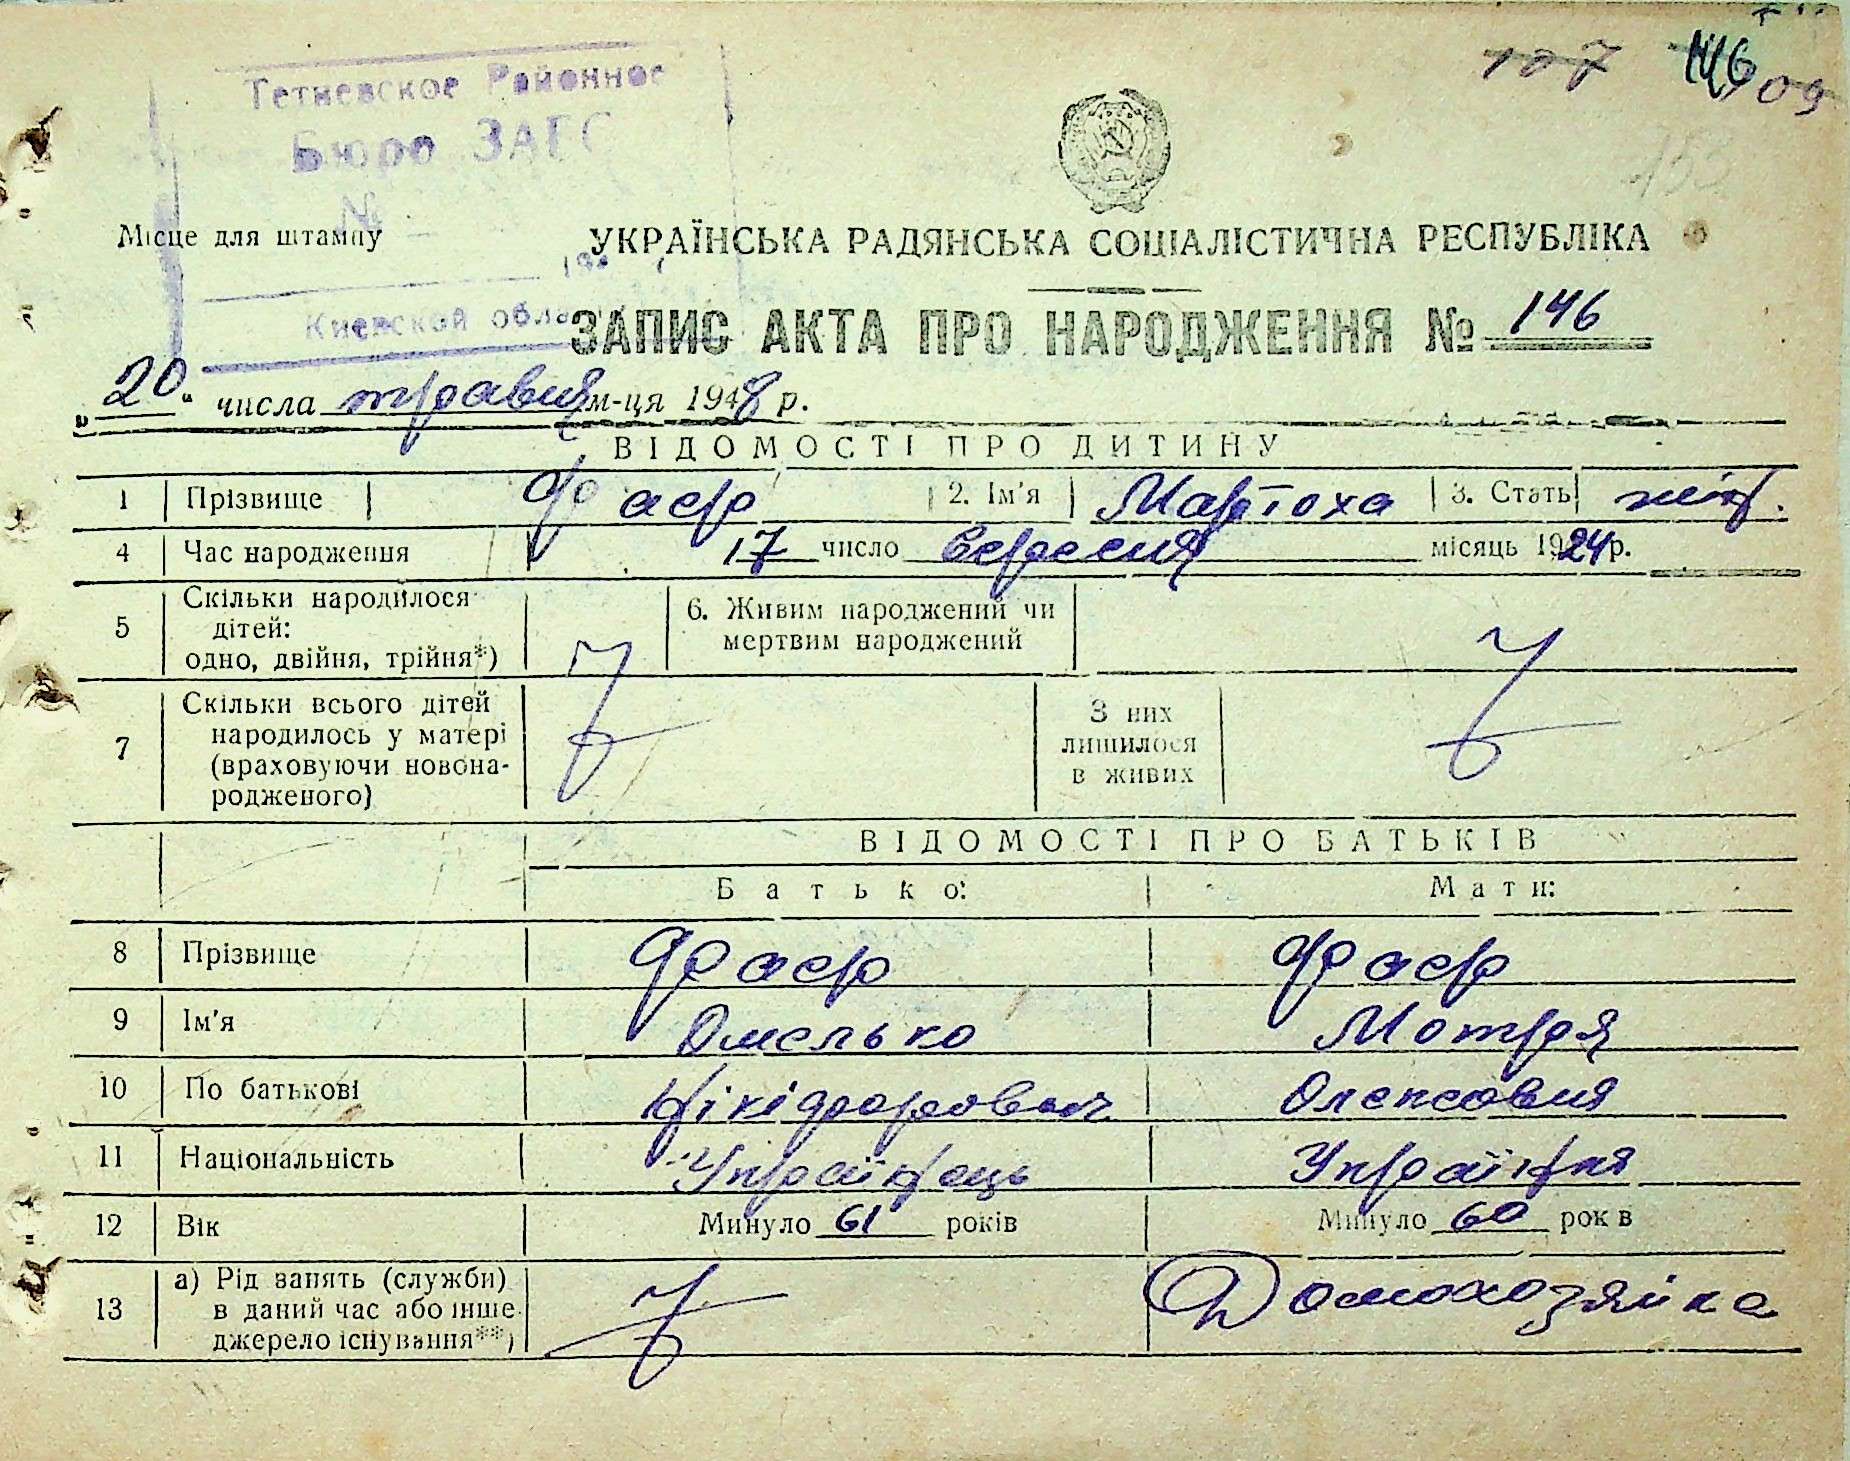 107 146 109
153
Тетиевское Районное
Бюро ЗАГС
№
Місце для штампу
УКРАЇНСЬКА РАДЯНСЬКА СОЦІАЛІСТИЧНА РЕСПУБЛІКА
Киевской обла
ЗАПИС АКТА ПРО НАРОДЖЕННЯ № 146
„20“ числа травня м-ця 1948 р.
ВІДОМОСТІ ПРО ДИТИНУ
1 Прізвище Фаєр 2. Ім'я Мартоха 3. Стать жін.
4 Час народження 17 число вересня місяць 1924 р.
5 Скільки народилося
дітей:
одно, двійня, трійня*)
6. Живим народжений чи
мертвим народжений
7 Скільки всього дітей
народилось у матері
(враховуючи новона-
родженого)
З них
лишилося
в живих
ВІДОМОСТІ ПРО БАТЬКІВ
Батько: Мати:
8 Прізвище Фаєр Фаєр
9 Ім'я Омелько Мотря
10 По батькові Нікіфорович Олексовня
11 Національність Українець Українка
12 Вік Минуло 61 років Минуло 60 рок в
13 а) Рід занять (служби)
в даний час або інше
джерело існування**)
Домохозяйка